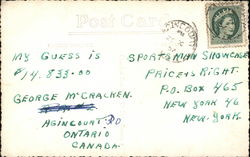 Post Card
MY GUESS IS
$14.833.00
GEORGE MCCRACKEN.
AGINCOURT PO
ONTARIO
CANADA.
SPORTSMAN SHOWCASE
PRICE IS RIGHT.
P.O. BOX 465
NEW YORK 46
NEW-YORK.